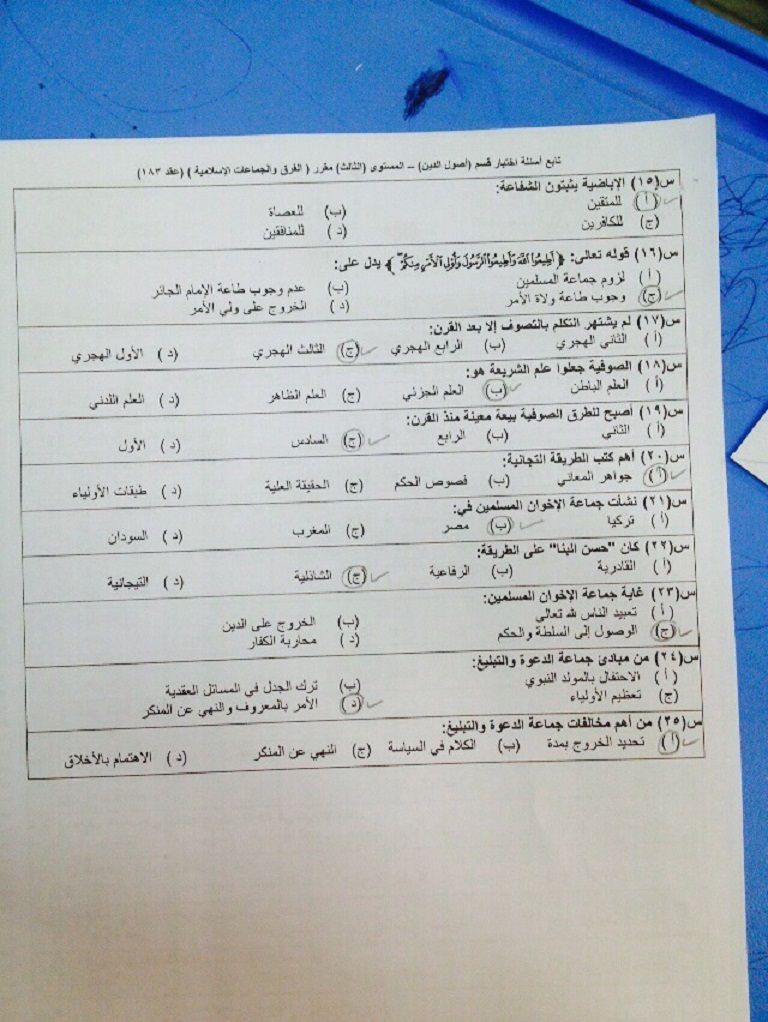 تابع أسئلة اختبار قسم (أصول الدين) – المستوى (الثالث) مقرر ( الفرق والجماعات الإسلامية ) (عقد ١٨٣)
س(١٥) الإباضية يثبتون الشفاعة:
(أ) للمتقين (ب) للعصاة
(ج) للكافرين (د) للمنافقين
س(١٦) قوله تعالى: ﴿أَطِيعُوا اللَّهَ وَأَطِيعُوا الرَّسُولَ وَأُوْلِي الْأَمْرِ مِنكُمْ﴾ يدل على:
(أ) لزوم جماعة المسلمين (ب) عدم وجوب طاعة الإمام الجائر
(ج) وجوب طاعة ولاة الأمر (د) الخروج على ولي الأمر
س(١٧) لم يشتهر التكلم بالتصوف إلا بعد القرن:
(أ) الثاني الهجري (ب) الرابع الهجري (ج) الثالث الهجري (د) الأول الهجري
س(١٨) الصوفية جعلوا علم الشريعة هو:
(أ) العلم الباطن (ب) العلم الجزئي (ج) العلم الظاهر (د) العلم اللدني
س(١٩) أصبح للطرق الصوفية بيعة معينة منذ القرن:
(أ) الثاني (ب) الرابع (ج) السادس (د) الأول
س(٢٠) أهم كتب الطريقة التجانية:
(أ) جواهر المعاني (ب) فصوص الحكم (ج) الحقيقة العلية (د) طبقات الأولياء
س(٢١) نشأت جماعة الإخوان المسلمين في:
(أ) تركيا (ب) مصر (ج) المغرب (د) السودان
س(٢٢) كان "حسن البنا" على الطريقة:
(أ) القادرية (ب) الرفاعية (ج) الشاذلية (د) التيجانية
س(٢٣) غاية جماعة الإخوان المسلمين:
(أ) تعبيد الناس لله تعالى (ب) الخروج على الدين
(ج) الوصول إلى السلطة والحكم (د) محاربة الكفار
س(٢٤) من مبادئ جماعة الدعوة والتبليغ:
(أ) الاحتفال بالمولد النبوي (ب) ترك الجدل في المسائل العقدية
(ج) تعظيم الأولياء (د) الأمر بالمعروف والنهي عن المنكر
س(٢٥) من أهم مخالفات جماعة الدعوة والتبليغ:
(أ) تحديد الخروج بمدة (ب) الكلام في السياسة (ج) النهي عن المنكر (د) الاهتمام بالأخلاق